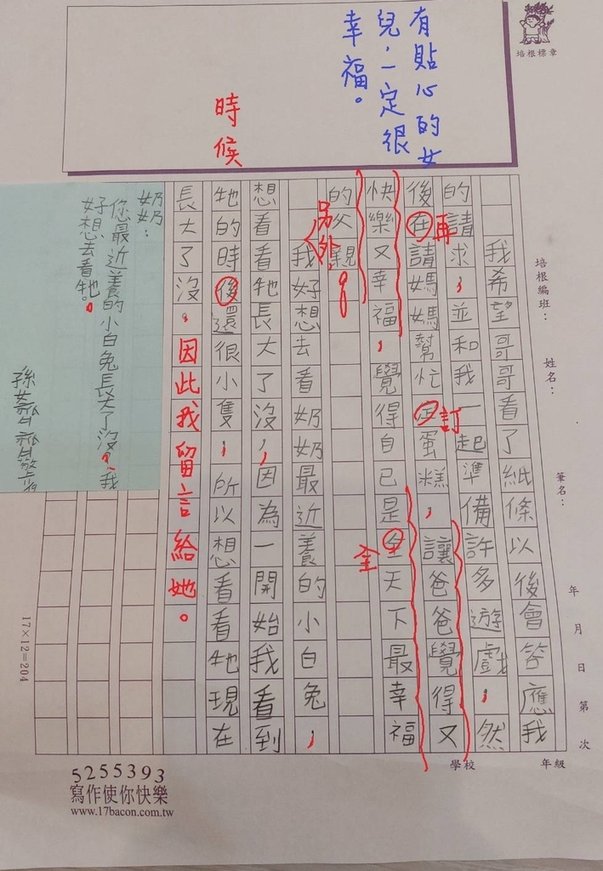 培根標章
有貼心的女
兒,一定很
幸福。
培根編班:
姓名:
筆名:
年 月 日 第 次
學校
年級
我希望哥哥看了紙條以後會答應我
的請求,並和我一起準備許多遊戲,然
後在請媽媽幫忙定蛋糕,讓爸爸覺得又
再
訂
快樂又幸福,覺得自己是全天下最幸福
全
的父親。
另外,
我好想去看奶奶最近養的小白兔,
想看看牠長大了沒,因為一開始我看到
牠的時後還很小隻,所以想看看牠現在
時候
長大了沒,因此我留言給她。
奶奶:
您最近養的小白兔長大了沒?我
好想去看牠。
孫女
17×12=204
5255393
寫作使你快樂
www.17bacon.com.tw